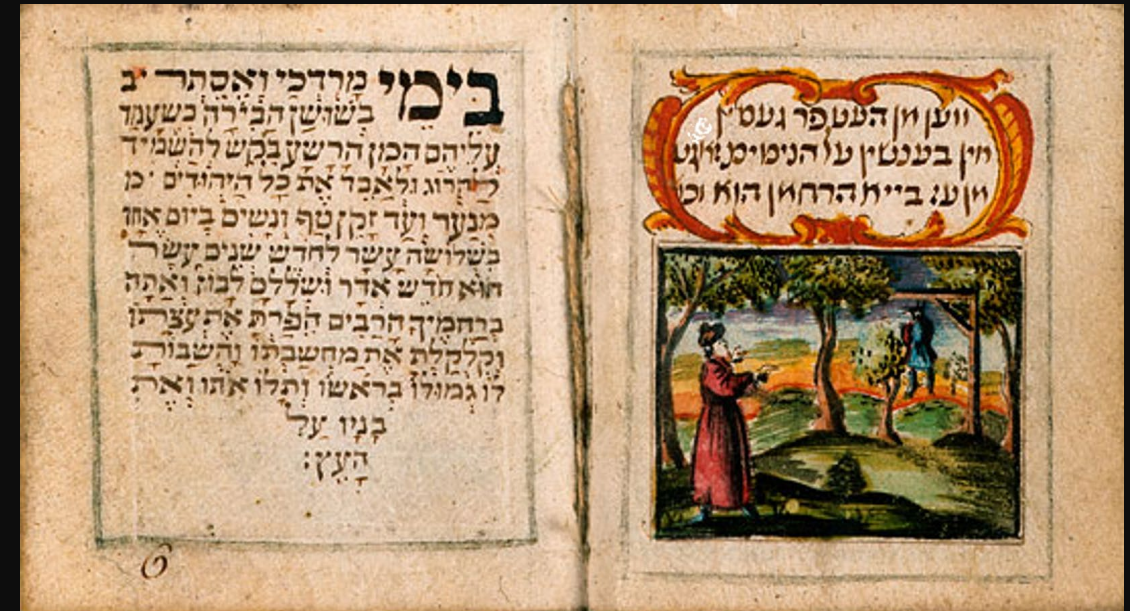 ווען מן העט פר געסין
אין בענטשין על הניסים זאגט
מן עז בייא הרחמן הוא וכו
בִּימֵי מָרְדְּכַי וְאֶסְתֵּר ב
בְּשׁוּשַׁן הַבִּירָה כְּשֶׁעָמַד
עֲלֵיהֶם הָמָן הָרָשָׁע בִּקֵּשׁ לְהַשְׁמִיד
לַהֲרוֹג וּלְאַבֵּד אֶת כָּל הַיְּהוּדִים מ
מִנַּעַר וְעַד זָקֵן טַף וְנָשִׁים בְּיוֹם אֶחָד
בִּשְׁלוֹשָׁה עָשָׂר לְחֹדֶשׁ שְׁנֵים עָשָׂר
הוּא חֹדֶשׁ אֲדָר וּשְׁלָלָם לָבוֹז וְאַתָּה
בְּרַחֲמֶיךָ הָרַבִּים הֵפַרְתָּ אֶת עֲצָתוֹ
וְקִלְקַלְתָּ אֶת מַחֲשַׁבְתּוֹ וַהֲשֵׁבוֹתָ
לוֹ גְּמוּלוֹ בְּרֹאשׁוֹ וְתָלוּ אֹתוֹ וְאֶת
בָּנָיו עַל
הָעֵץ:
6